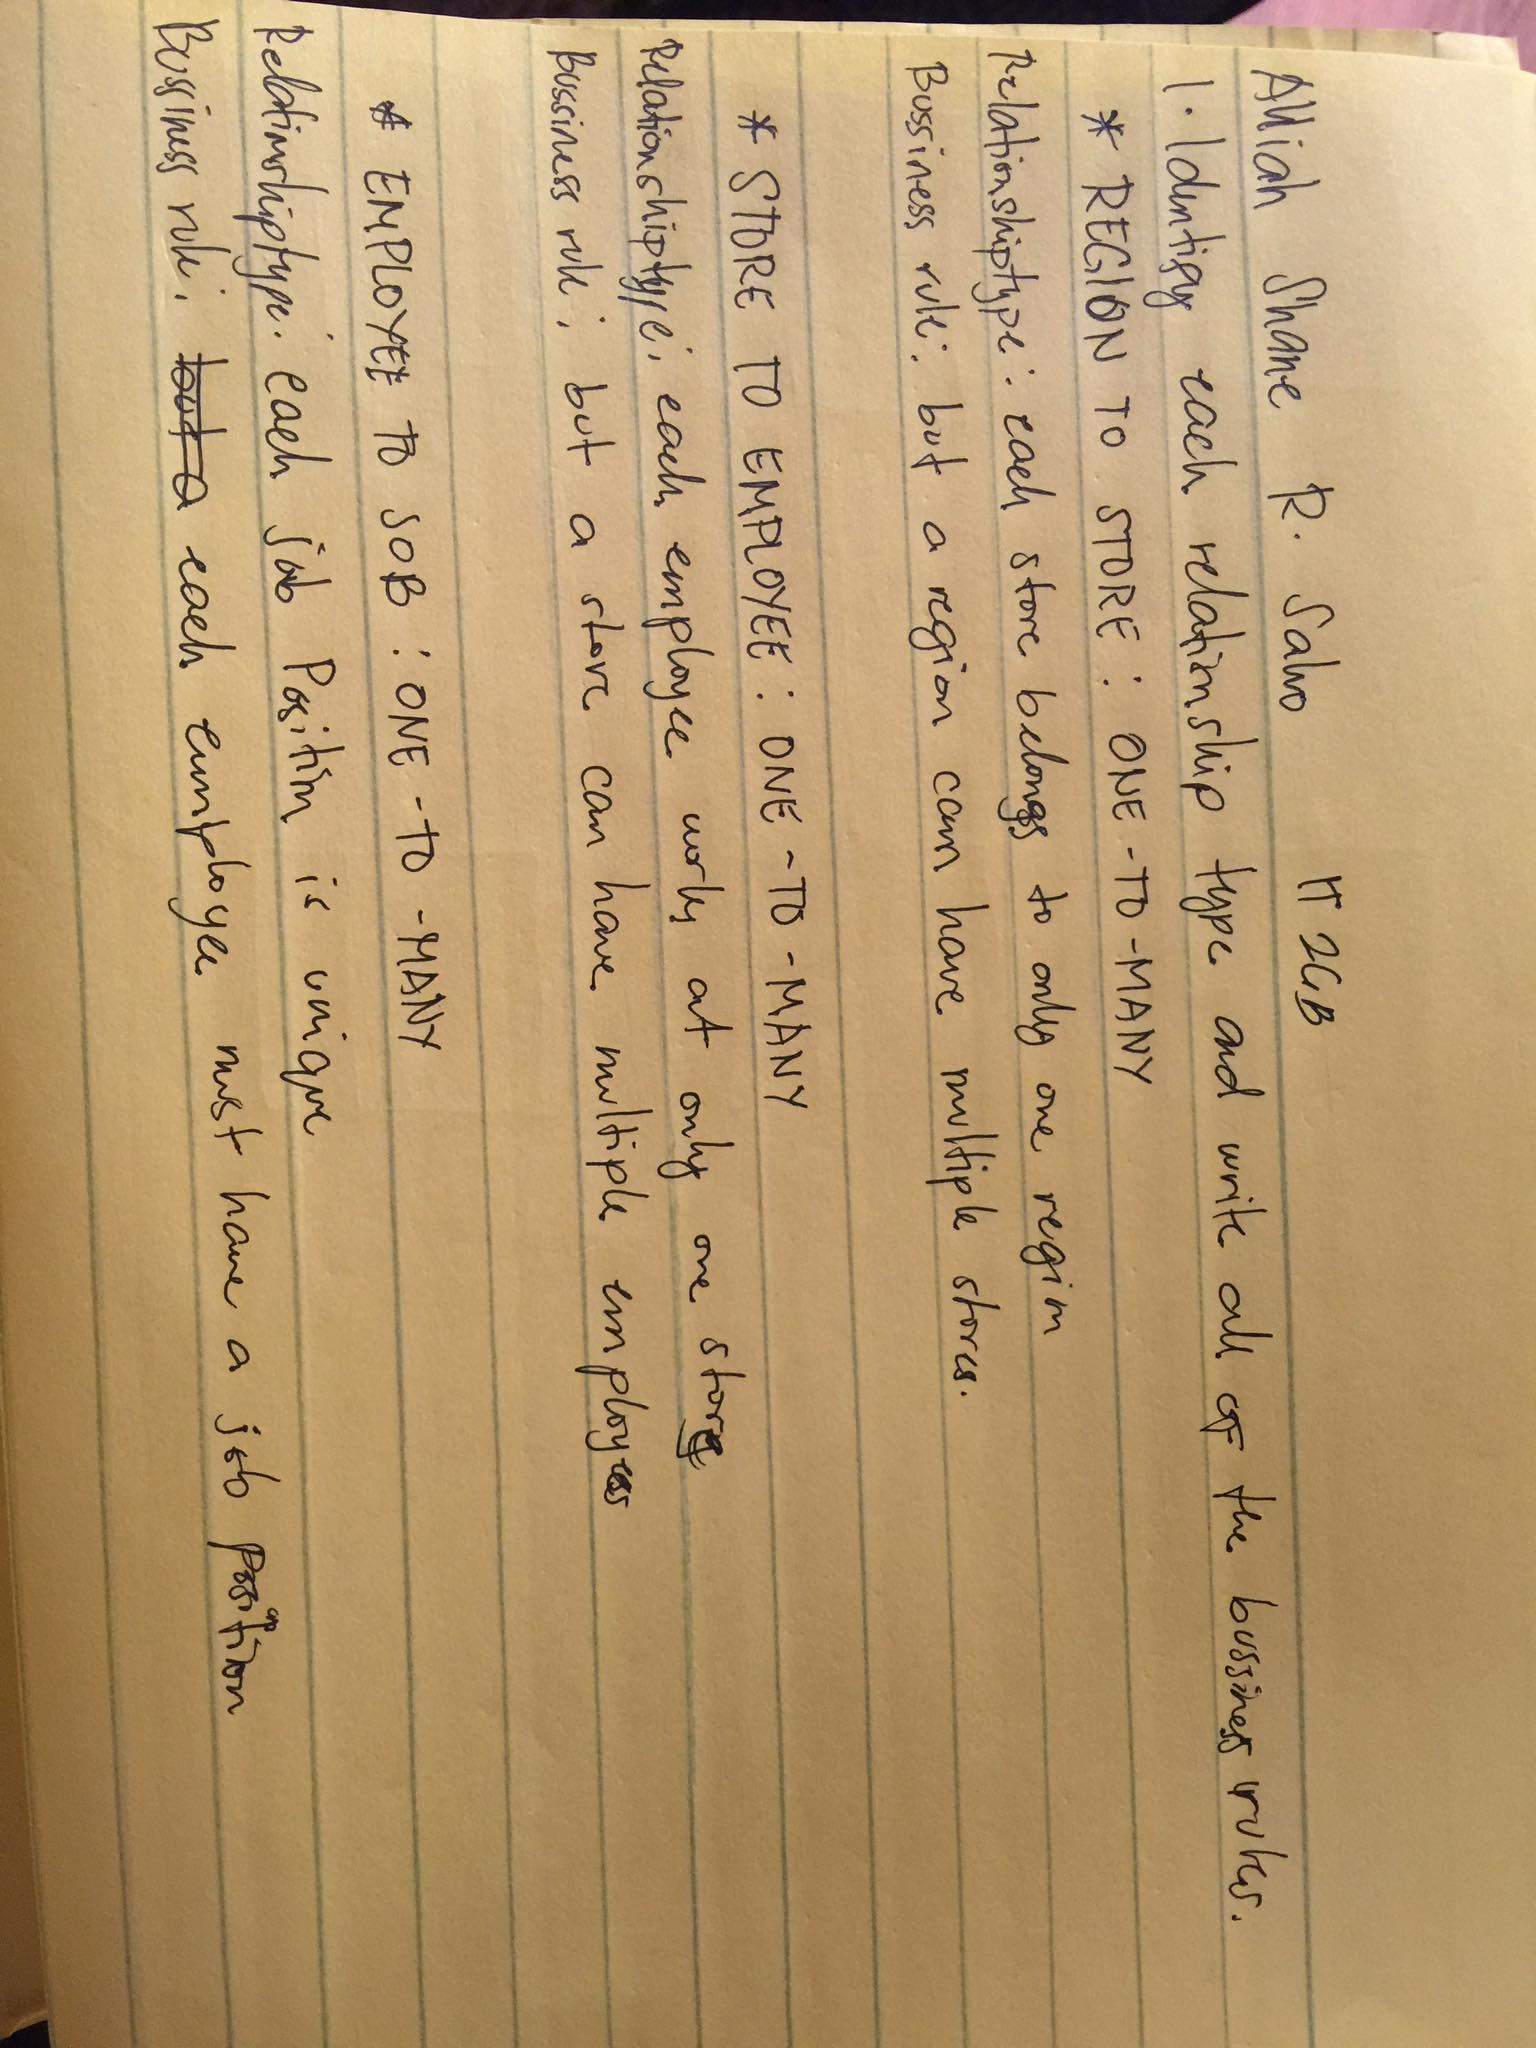 Alliah Shane R. Salvo IT 2GB
1. Identify each relationship type and write all of the bussiness rules.
* REGION TO STORE : ONE-TO-MANY
Relationship type : each store belongs to only one region
Bussiness rule : but a region can have multiple stores.
* STORE TO EMPLOYEE : ONE-TO-MANY
Relationship type : each employee works at only one store
Bussiness rule : but a store can have multiple employees
* EMPLOYEE TO JOB : ONE-TO-MANY
Relationship type : each job Position is unique
Bussiness rule : but a each employee must have a job position